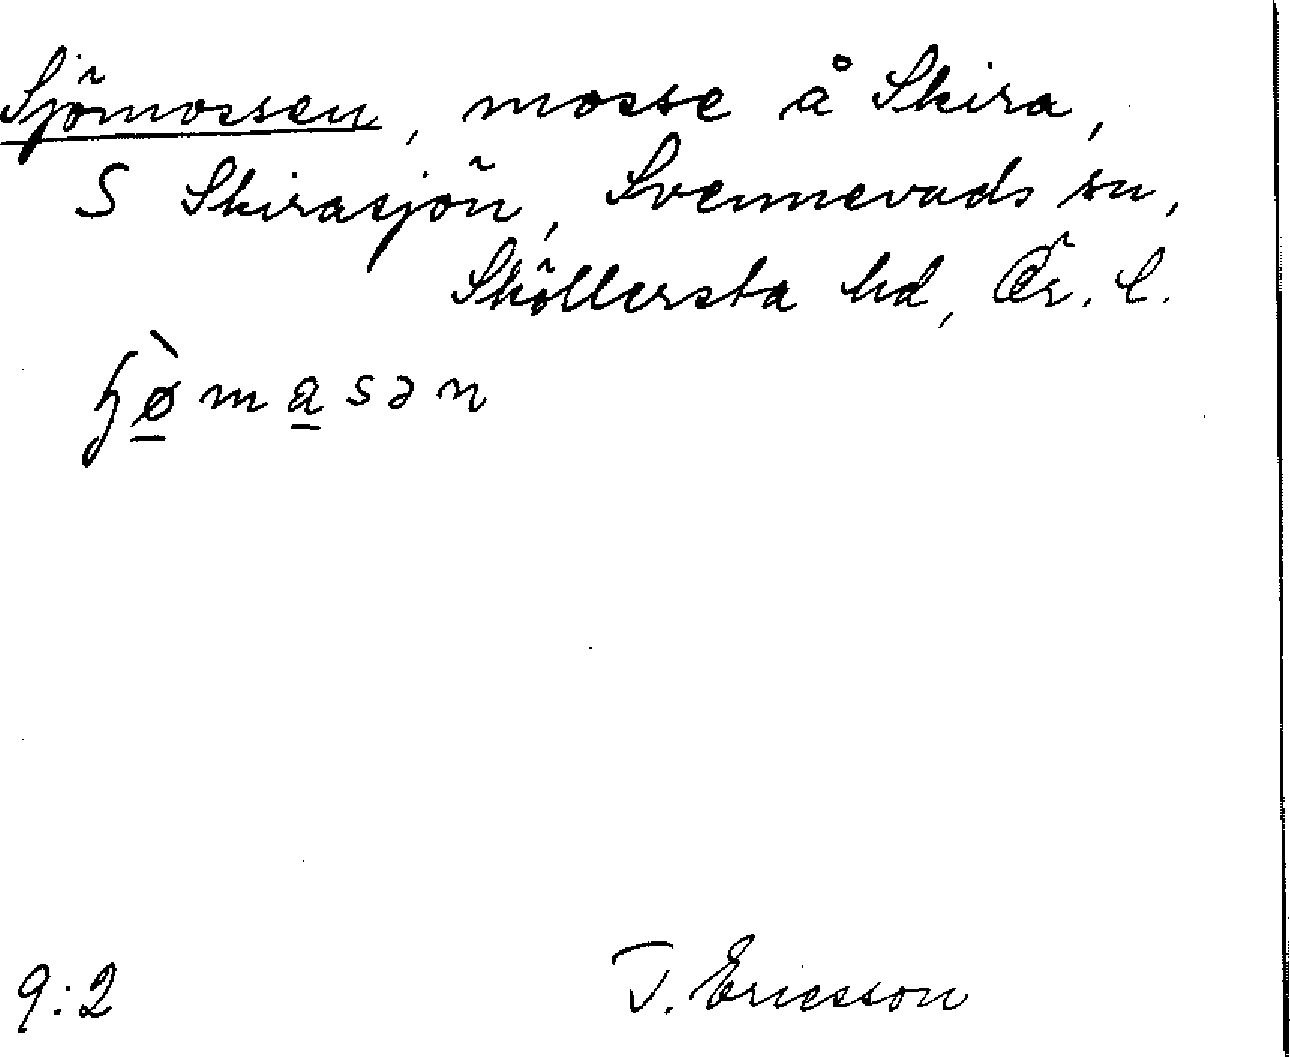 Sjömossen, mosse å Skira,
S Skirasjön, Svennevads sn,
Sköllersta hd, Ör. l.
ɧø̀masən
9:2
T. Ericsson